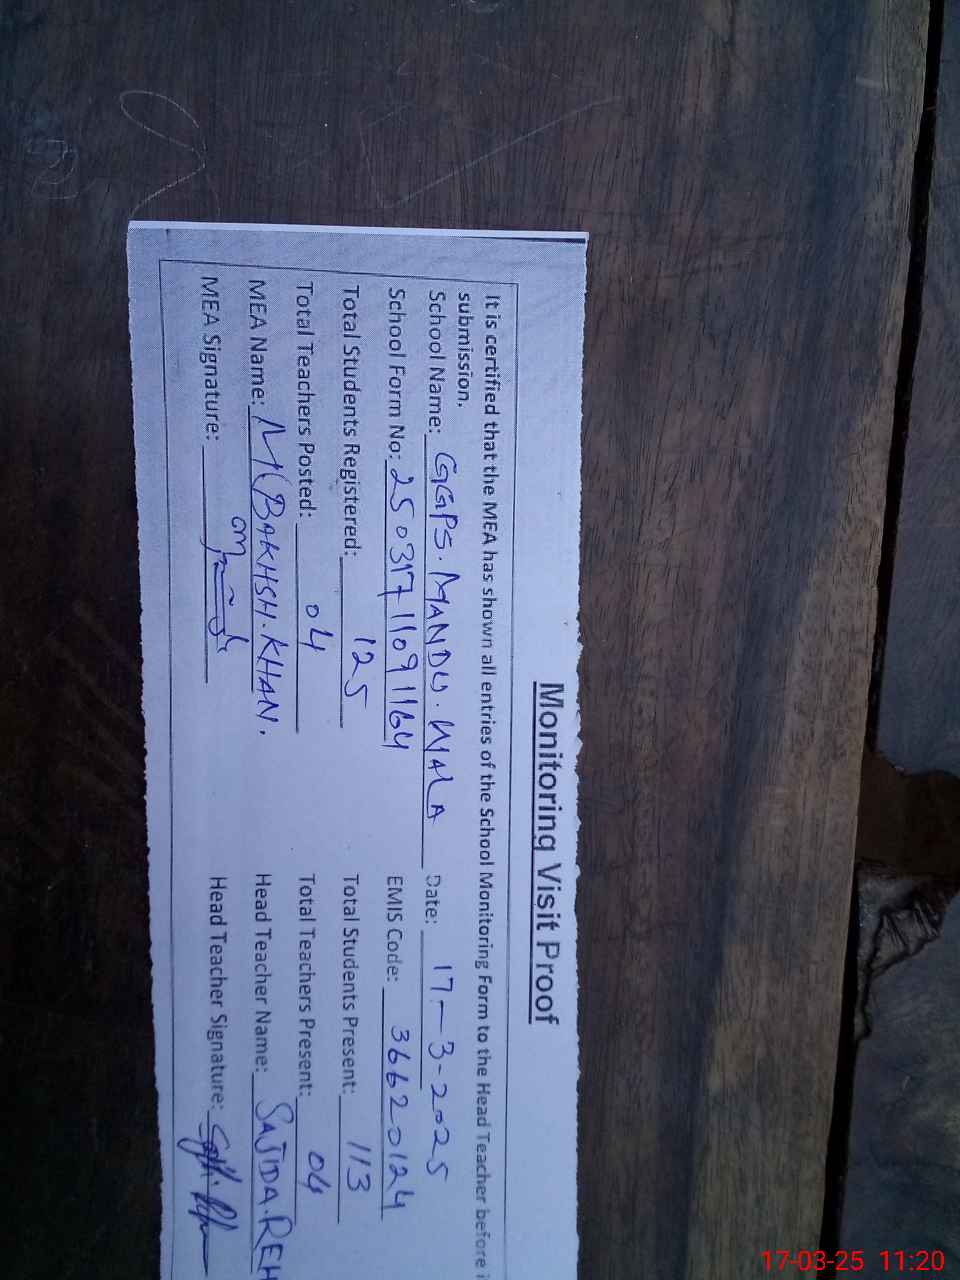 Monitoring Visit Proof
It is certified that the MEA has shown all entries of the School Monitoring Form to the Head Teacher before
submission.
School Name: GGPS. MANDU. WALA Date: 17-3-2025
School Form No: 25031711091164 EMIS Code: 36620124
Total Students Registered: 125 Total Students Present: 113
Total Teachers Posted: 04 Total Teachers Present: 04
MEA Name: M(BAKHSH. KHAN. Head Teacher Name: SAJIDA. REH
MEA Signature: Head Teacher Signature:
17-03-25 11:20